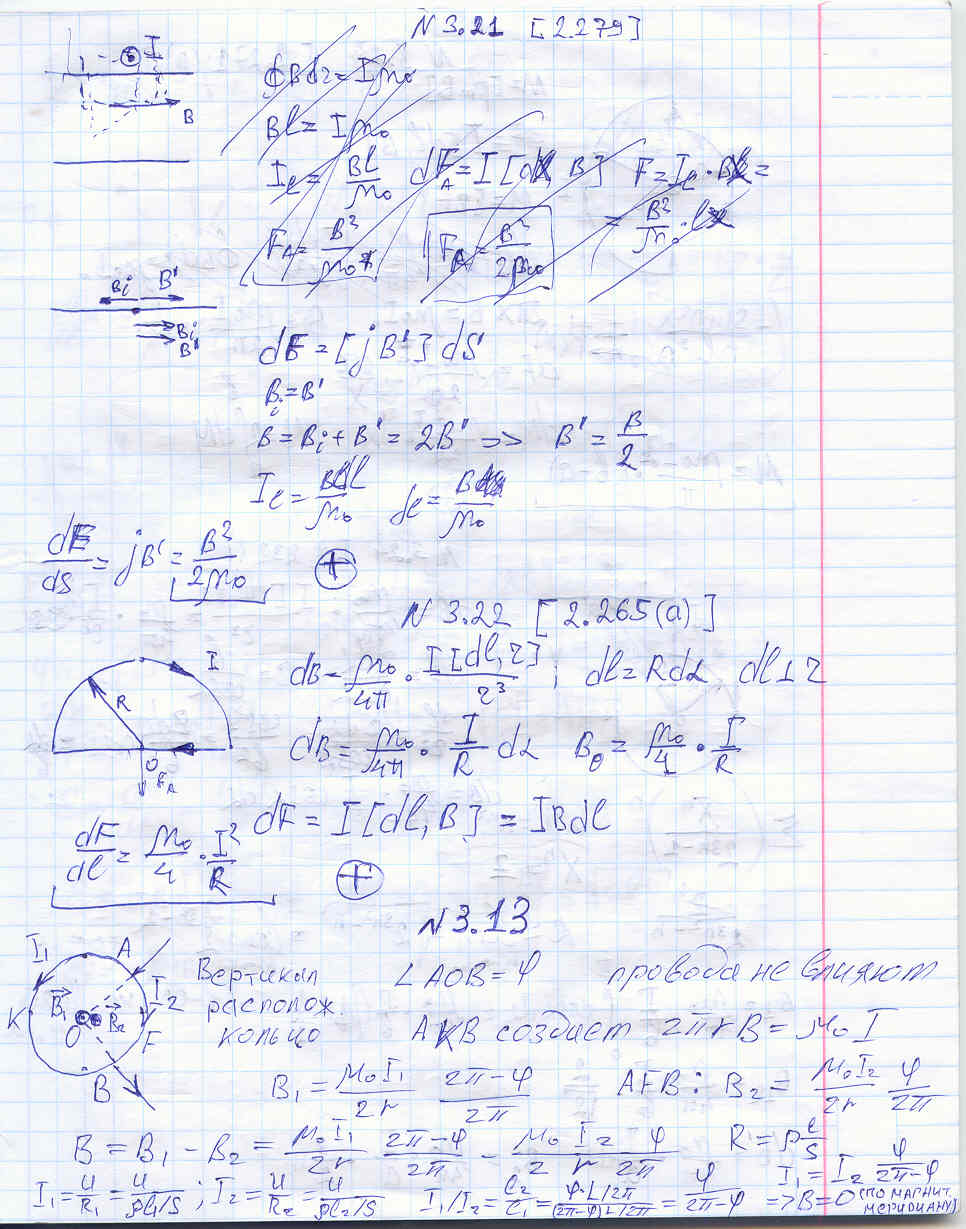 N 3.21 [2.279]
I
B
∮Bdr = Iμ₀
Bl = Iμ₀
I_l = Bl/μ₀ dF_A = I[dl, B] F = I_l · Bl =
= B²/μ₀ · l
F_A = B²/μ₀ F_A = B²/2μ₀
B_i B'
B_i
B'
dF = [jB'] dS
B_i = B'
B = B_i + B' = 2B' => B' = B/2
I_l = Bdl/μ₀ j_l = B/μ₀
dF/dS = jB' = B²/2μ₀ +
N 3.22 [2.265(а)]
I
R
O
F_A
dB = μ₀/4π · I[dl, r]/r³ ; dl = Rdα dl ⊥ r
dB = μ₀/4π · I/R dα B₀ = μ₀/4 · I/R
dF = I[dl, B] = IBdl
dF/dl = μ₀/4 · I²/R
+
N 3.13
I₁ A I₂ B₁ B₂ K O F B
Вертикал располож. кольцо
∠AOB = φ провода не влияют
AKB создает 2πrB = μ₀I
B₁ = μ₀I₁/2r (2π-φ)/2π AFB: B₂ = μ₀I₂/2r φ/2π
B = B₁ - B₂ = μ₀I₁/2r (2π-φ)/2π - μ₀I₂/2r φ/2π R = ρ l/S
I₁ = I₂ φ/(2π-φ)
I₁ = u/R₁ = u/(ρl₁/S) ; I₂ = u/R₂ = u/(ρl₂/S) I₁/I₂ = l₂/l₁ = (φ·L/2π)/((2π-φ)L/2π) = φ/(2π-φ) => B = 0 (ПО МАГНИТ. МЕРИДИАНУ)